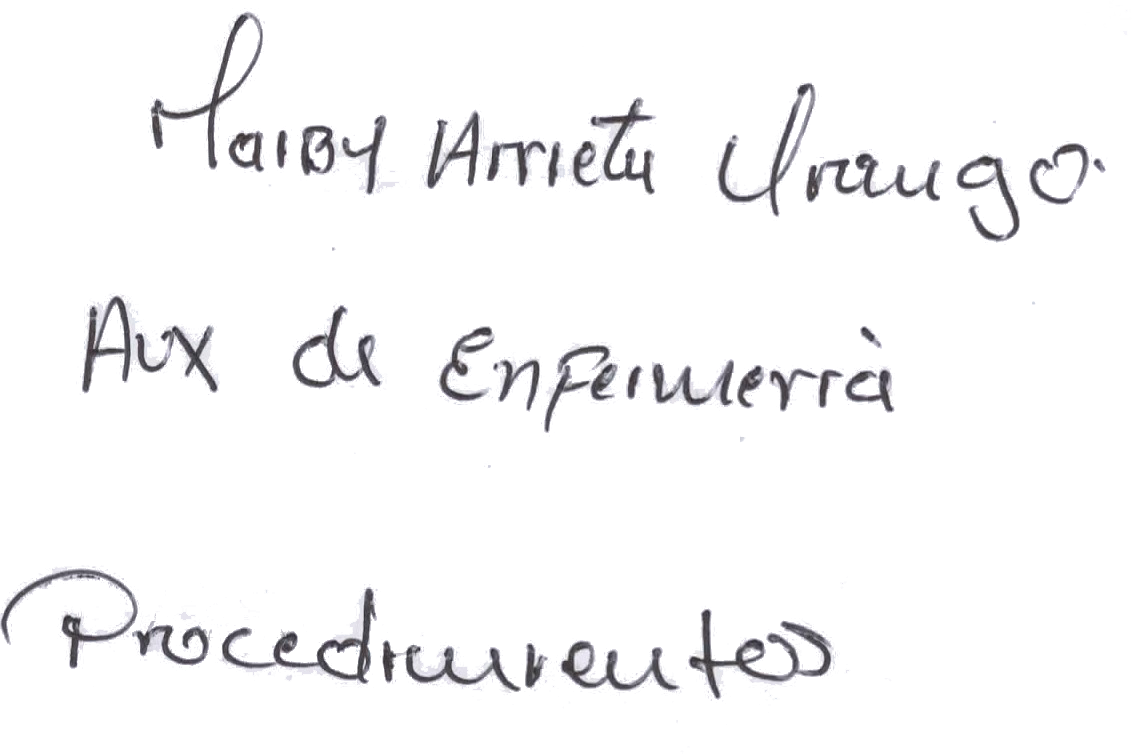 Maiby Arrieta Urango.
Aux de Enfermería
Procedimientos